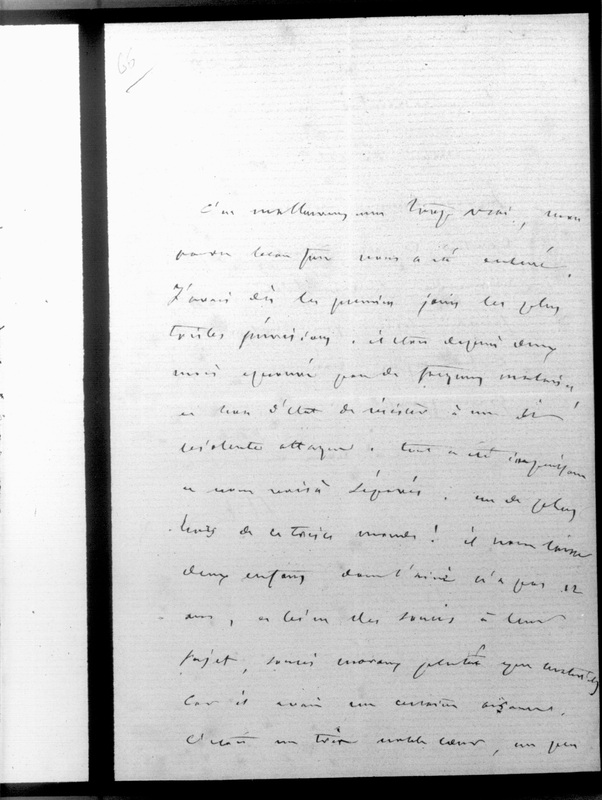 66
C'est malheureusement trop vrai, mon
pauvre beau frère nous a été enlevé.
J'avais dès les premiers jours les plus
tristes prévisions. il était depuis deux
mois éprouvé par de fréquents malaises
et hors d'état de résister à une si
violente attaque. tout a été
et nous voilà séparés. un de plus
hors de ce triste monde! il nous laisse
deux enfants dont l'aîné n'a pas 12
ans, et bien des soucis à leur
sujet, soucis moraux plutôt que matériels
car il avait une certaine aisance.
C'était un très noble cœur, un peu